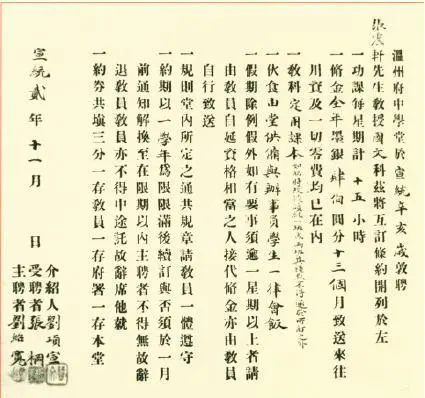 溫州府中學堂於宣統辛亥歲敦聘
張震軒先生教授國文科茲將互訂條約開列於左
一功課每星期計十五小時
一脩金全年墨銀肆佰圓分十三個月致送來往
川資及一切零費均已在內
一教科定用課本
一伙食由堂供備與辦事員學生一律會飯
一假期除例假外如有要事須逾一星期以上者請
由教員自延資格相當之人接代脩金亦由教員
自行致送
一規則堂內所定之通共規章請教員一體遵守
一約期以一學年為限限滿後續訂與否須於一月
前通知解換至在限期以內主聘者不得無故辭
退教員教員亦不得中途託故辭席他就
一約券共塡三分一存教員一存府署一存本堂
宣統貳年十一月 日
介紹人劉項宣
受聘者張棡
主聘者劉紹寬